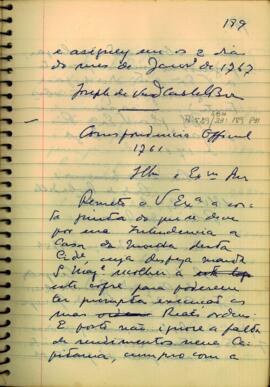 189
e assigney em os 2 dias
do mes de Janrº de 1767
Joseph de
Correspondencia Official
1761
Illmº e Exmº Snr
Remeto a V Exª a con
ta junta do que se deve
por esta Intendencia a
Casa da moeda desta
Cidº, cuja despeza manda
S. Magº recolher a este
este cofre para poderem
ter prompta execução as
mas Reaes ordens.
E posto não ignore a falta
de rendimentos nessa Ca
pitania, cumpro com a